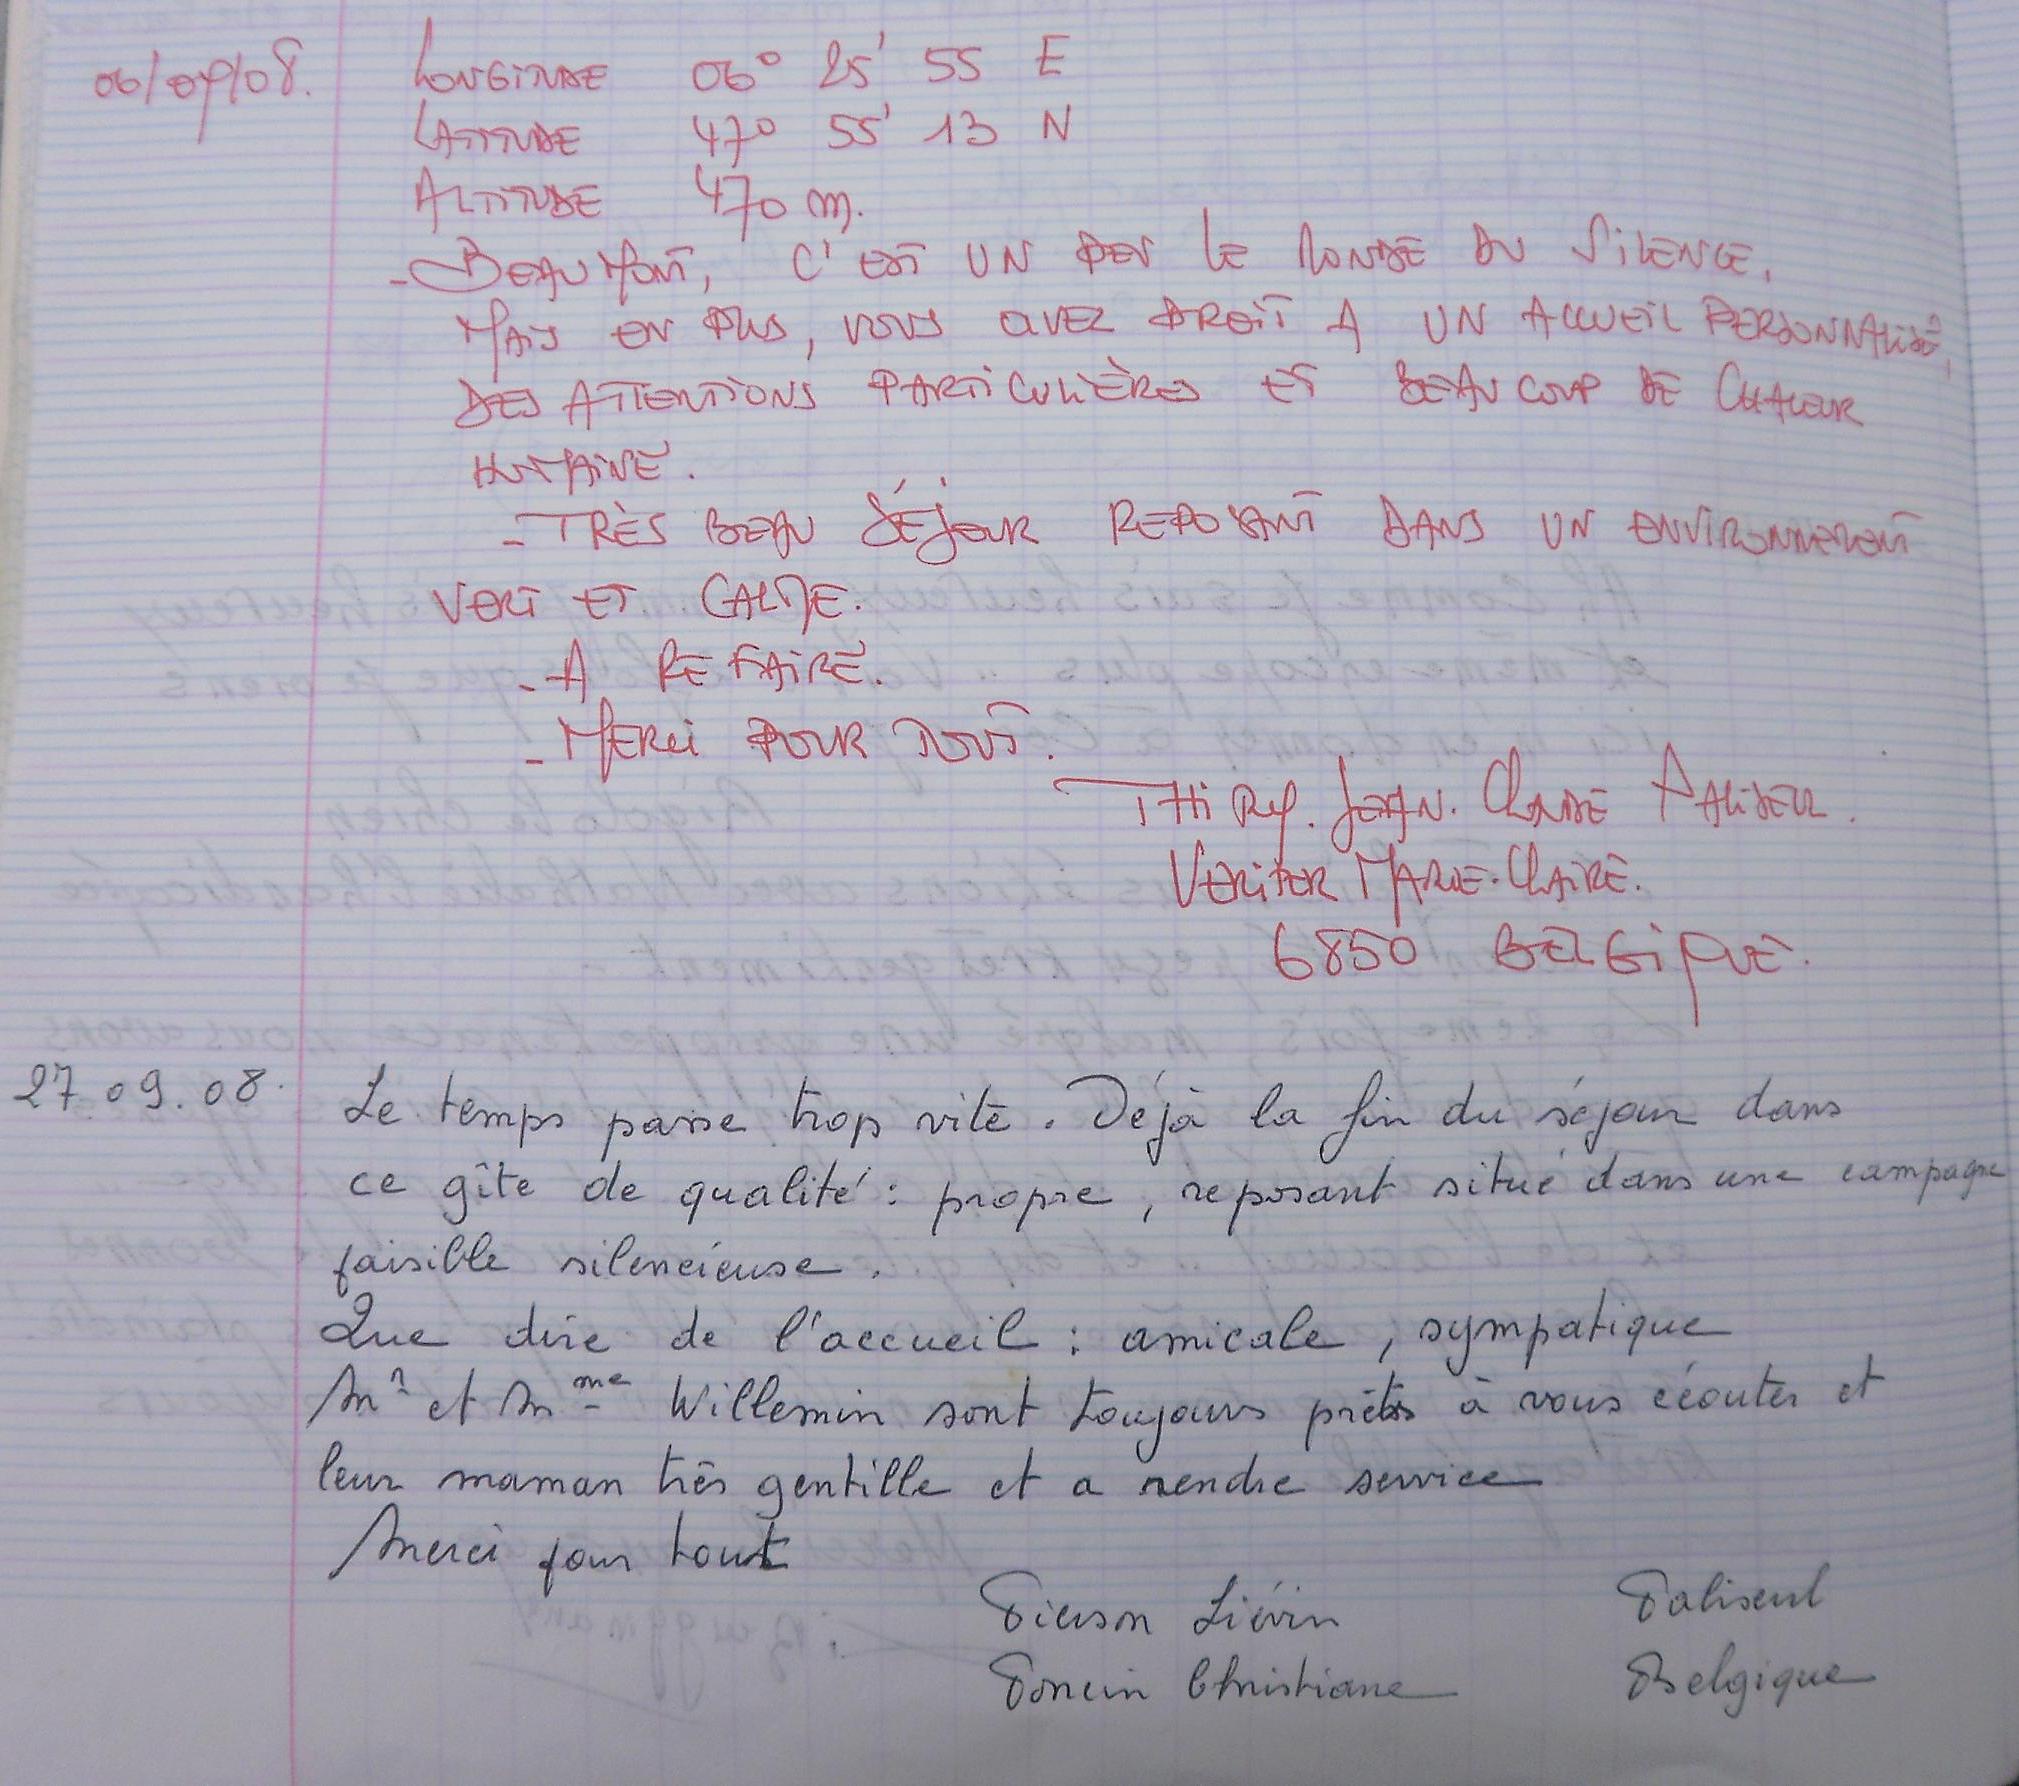 06/09/08. LONGITUDE 06° 25' 55 E
LATITUDE 47° 55' 13 N
ALTITUDE 470 m.
- BEAUMONT, C'EST UN PEU LE MONDE DU SILENCE,
MAIS EN PLUS, VOUS AVEZ DROIT A UN ACCUEIL PERSONNALISÉ,
DES ATTENTIONS PARTICULIÈRES ET BEAUCOUP DE CHALEUR
HUMAINE.
- TRÈS BEAU SÉJOUR REPOSANT DANS UN ENVIRONNEMENT
VERT ET CALME.
- A REFAIRE.
- MERCI POUR TOUT.
THIRY. JEAN. CLAUDE PALISEUL.
VERITER MARIE-CLAIRE.
6850 BELGIQUE.
27.09.08. Le temps passe trop vite. Déjà la fin du séjour dans
ce gîte de qualité : propre, reposant situé dans une campagne
paisible silencieuse.
Que dire de l'accueil : amicale, sympatique
Mr et Mme Willemin sont toujours prêts à vous écouter et
leur maman très gentille et a rendre service
Merci pour tout
Pierson Liévin Paliseul
Poncin Christiane Belgique